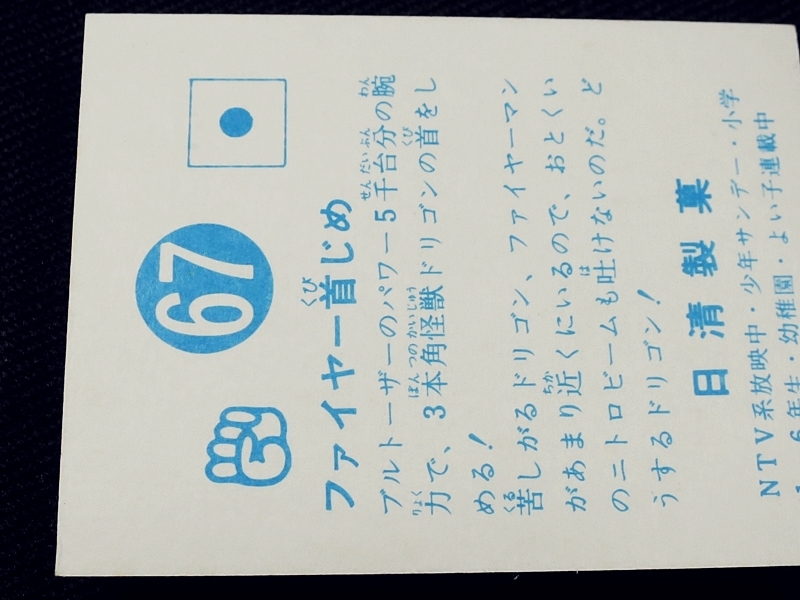 67
ファイヤー首じめ
くび
ブルトーザーのパワー5千台分の腕
せんだいぶん わん
力で、3本角怪獣ドリゴンの首をし
りょく ぼんつのかいじゅう くび
める!
苦しがるドリゴン、ファイヤーマン
くる
があまり近くにいるので、おとくい
ちか
のニトロビームも吐けないのだ。ど
は
うするドリゴン!
日清製菓
NTV系放映中・少年サンデー・小学
6年生・幼稚園・よい子連載中